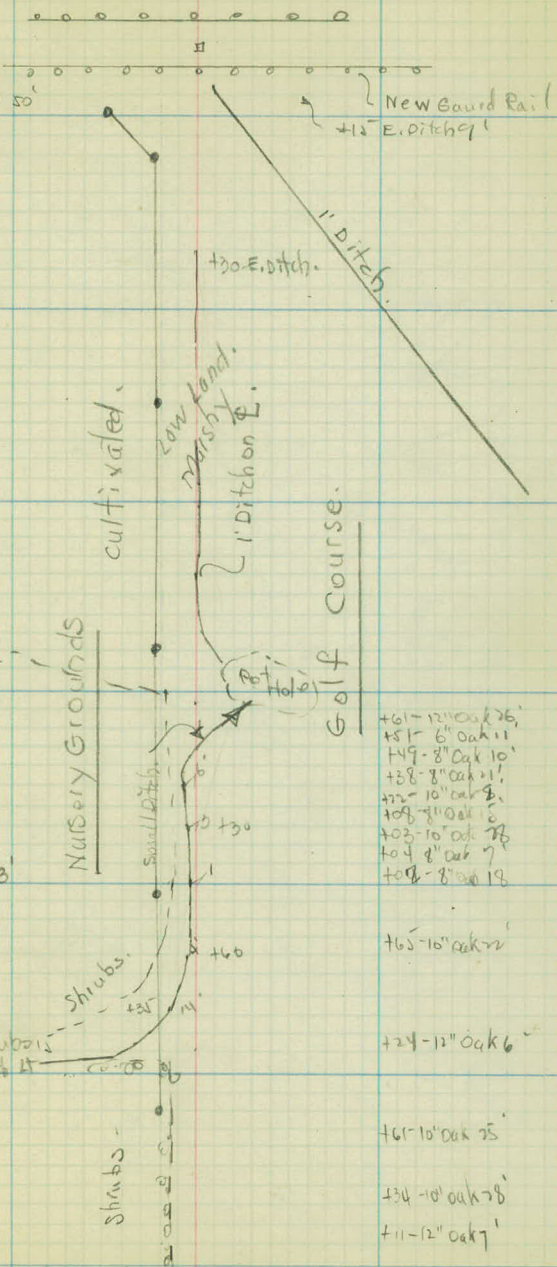 50'
New Gaurd Rail
+15 E. Ditch 9'
1' Ditch.
+30 E. Ditch.
Low Land.
Marshy
1' Ditch on ℄.
Cultivated.
Golf Course.
Nursery Grounds
Pot Hole
Small Ditch.
+61-12" Oak 26'
+51-6" Oak 11
+49-8" Oak 10'
+38-8" Oak 21'
+22-10" Oak
+08-8" Oak
+03-10" Oak 28
+04 8" Oak 7'
8" Oak 18
6'
+30
+60
+65-10" Oak 22'
Shrubs.
+35
+24-12" Oak 6'
Shrubs-
+61-10" Oak 25'
+34-10" Oak 28'
+11-12" Oak 7'